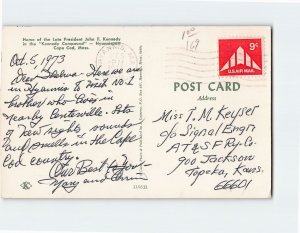 Home of the Late President John F. Kennedy
in the "Kennedy Compound" — Hyannisport
Cape Cod, Mass.
Oct. 5, 1973
Dear Thelma - Here we are
in Hyannis to visit No. 1
brother who lives in
nearby Centerville. Lots
of new sights, sounds
and smells in the Cape
Cod country.
Our Best to You
Mary and
9¢
U.S. AIR MAIL
POST CARD
Address
Miss T. M. Keyser
c/o Signal Engr
AT&SF Ry. Co.
900 Jackson
Topeka, Kans.
66601
K